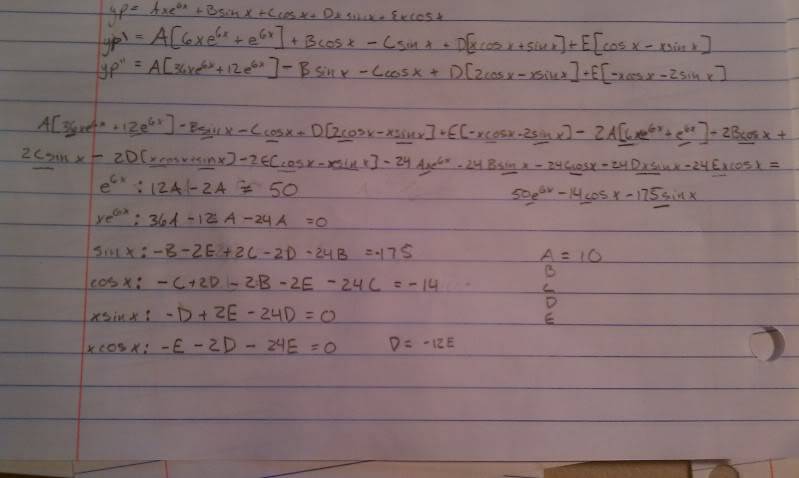 yp = Axe^6x + Bsinx + Ccosx + Dxsinx + Excosx
yp' = A[6xe^6x + e^6x] + Bcosx - Csinx + D[xcosx + sinx] + E[cosx - xsinx]
yp" = A[36xe^6x + 12e^6x] - Bsinx - Ccosx + D[2cosx - xsinx] + E[-xcosx - 2sinx]
A[36xe^6x + 12e^6x] - Bsinx - Ccosx + D[2cosx - xsinx] + E[-xcosx - 2sinx] - 2A[6xe^6x + e^6x] - 2Bcosx +
2Csinx - 2D[xcosx + sinx] - 2E[cosx - xsinx] - 24Axe^6x - 24Bsinx - 24Ccosx - 24Dxsinx - 24Excosx =
e^6x : 12A - 2A = 50 50e^6x - 14cosx - 175sinx
xe^6x : 36A - 12A - 24A = 0
sinx : -B - 2E + 2C - 2D - 24B = -175 A = 10
B
cosx : -C + 2D - 2B - 2E - 24C = -14 C
xsinx : -D + 2E - 24D = 0 D
E
xcosx : -E - 2D - 24E = 0 D = -12E